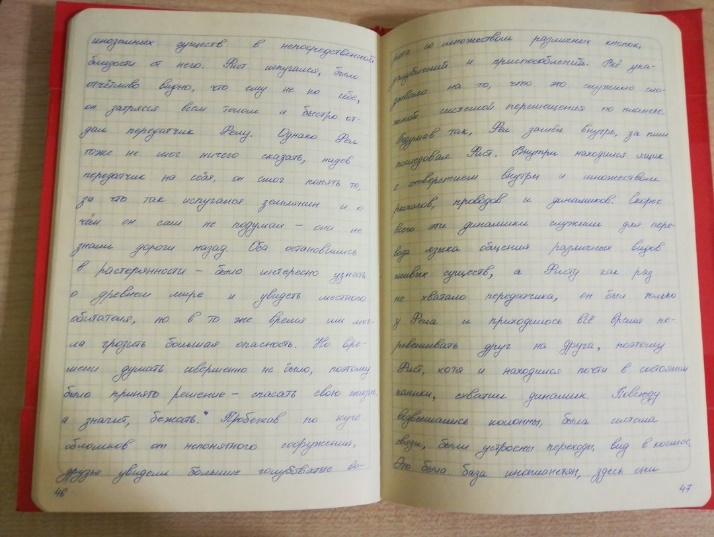 инозёмных существ в непосредственной
близости от него. Фист испугался, было
отчётливо видно, что ему не по себе,
он затрясся всем телом и быстро от-
дал передатчик Фелу. Однако Фел
тоже не мог ничего сказать, надев
передатчик на себя, он смог понять то,
за что так испугался землянин и о
чём он сам не подумал - они не
знали дороги назад. Оба остановились
в растерянности - было интересно узнать
о древнем мире и увидеть местного
обитателя, но в то же время им мог-
ла грозить большая опасность. Но вре-
мени думать совершенно не было, поэтому
было принято решение - спасать свою жизнь,
а значит, бежать. Пробежав по куче
обломков от непонятного сооружения,
друзья увидели большие голубоватые во-
46
рота со множеством различных кнопок,
углублений и приспособлений. Всё ука-
зывало на то, что это служило сло-
жной системой перемещения по планете.
Подумав так, Фел зашёл внутрь, за ним
последовал Фист. Внутри находился ящик
с отверстием внутри и множеством
рычагов, проводов и динамиков. Скорее
всего эти динамики служили для пере-
вода языка общения различных видов
живых существ, а Фисту как раз
не хватало передатчика, он был только
у Фела и приходилось всё время пе-
ревешивать друг на друга, поэтому
Фист, хотя и находился почти в состоянии
паники, схватил динамик. Повсюду
возвышались колонны, была система
связи, были устроены переходы, вид в космос.
Это была база инопланетян, здесь они
47